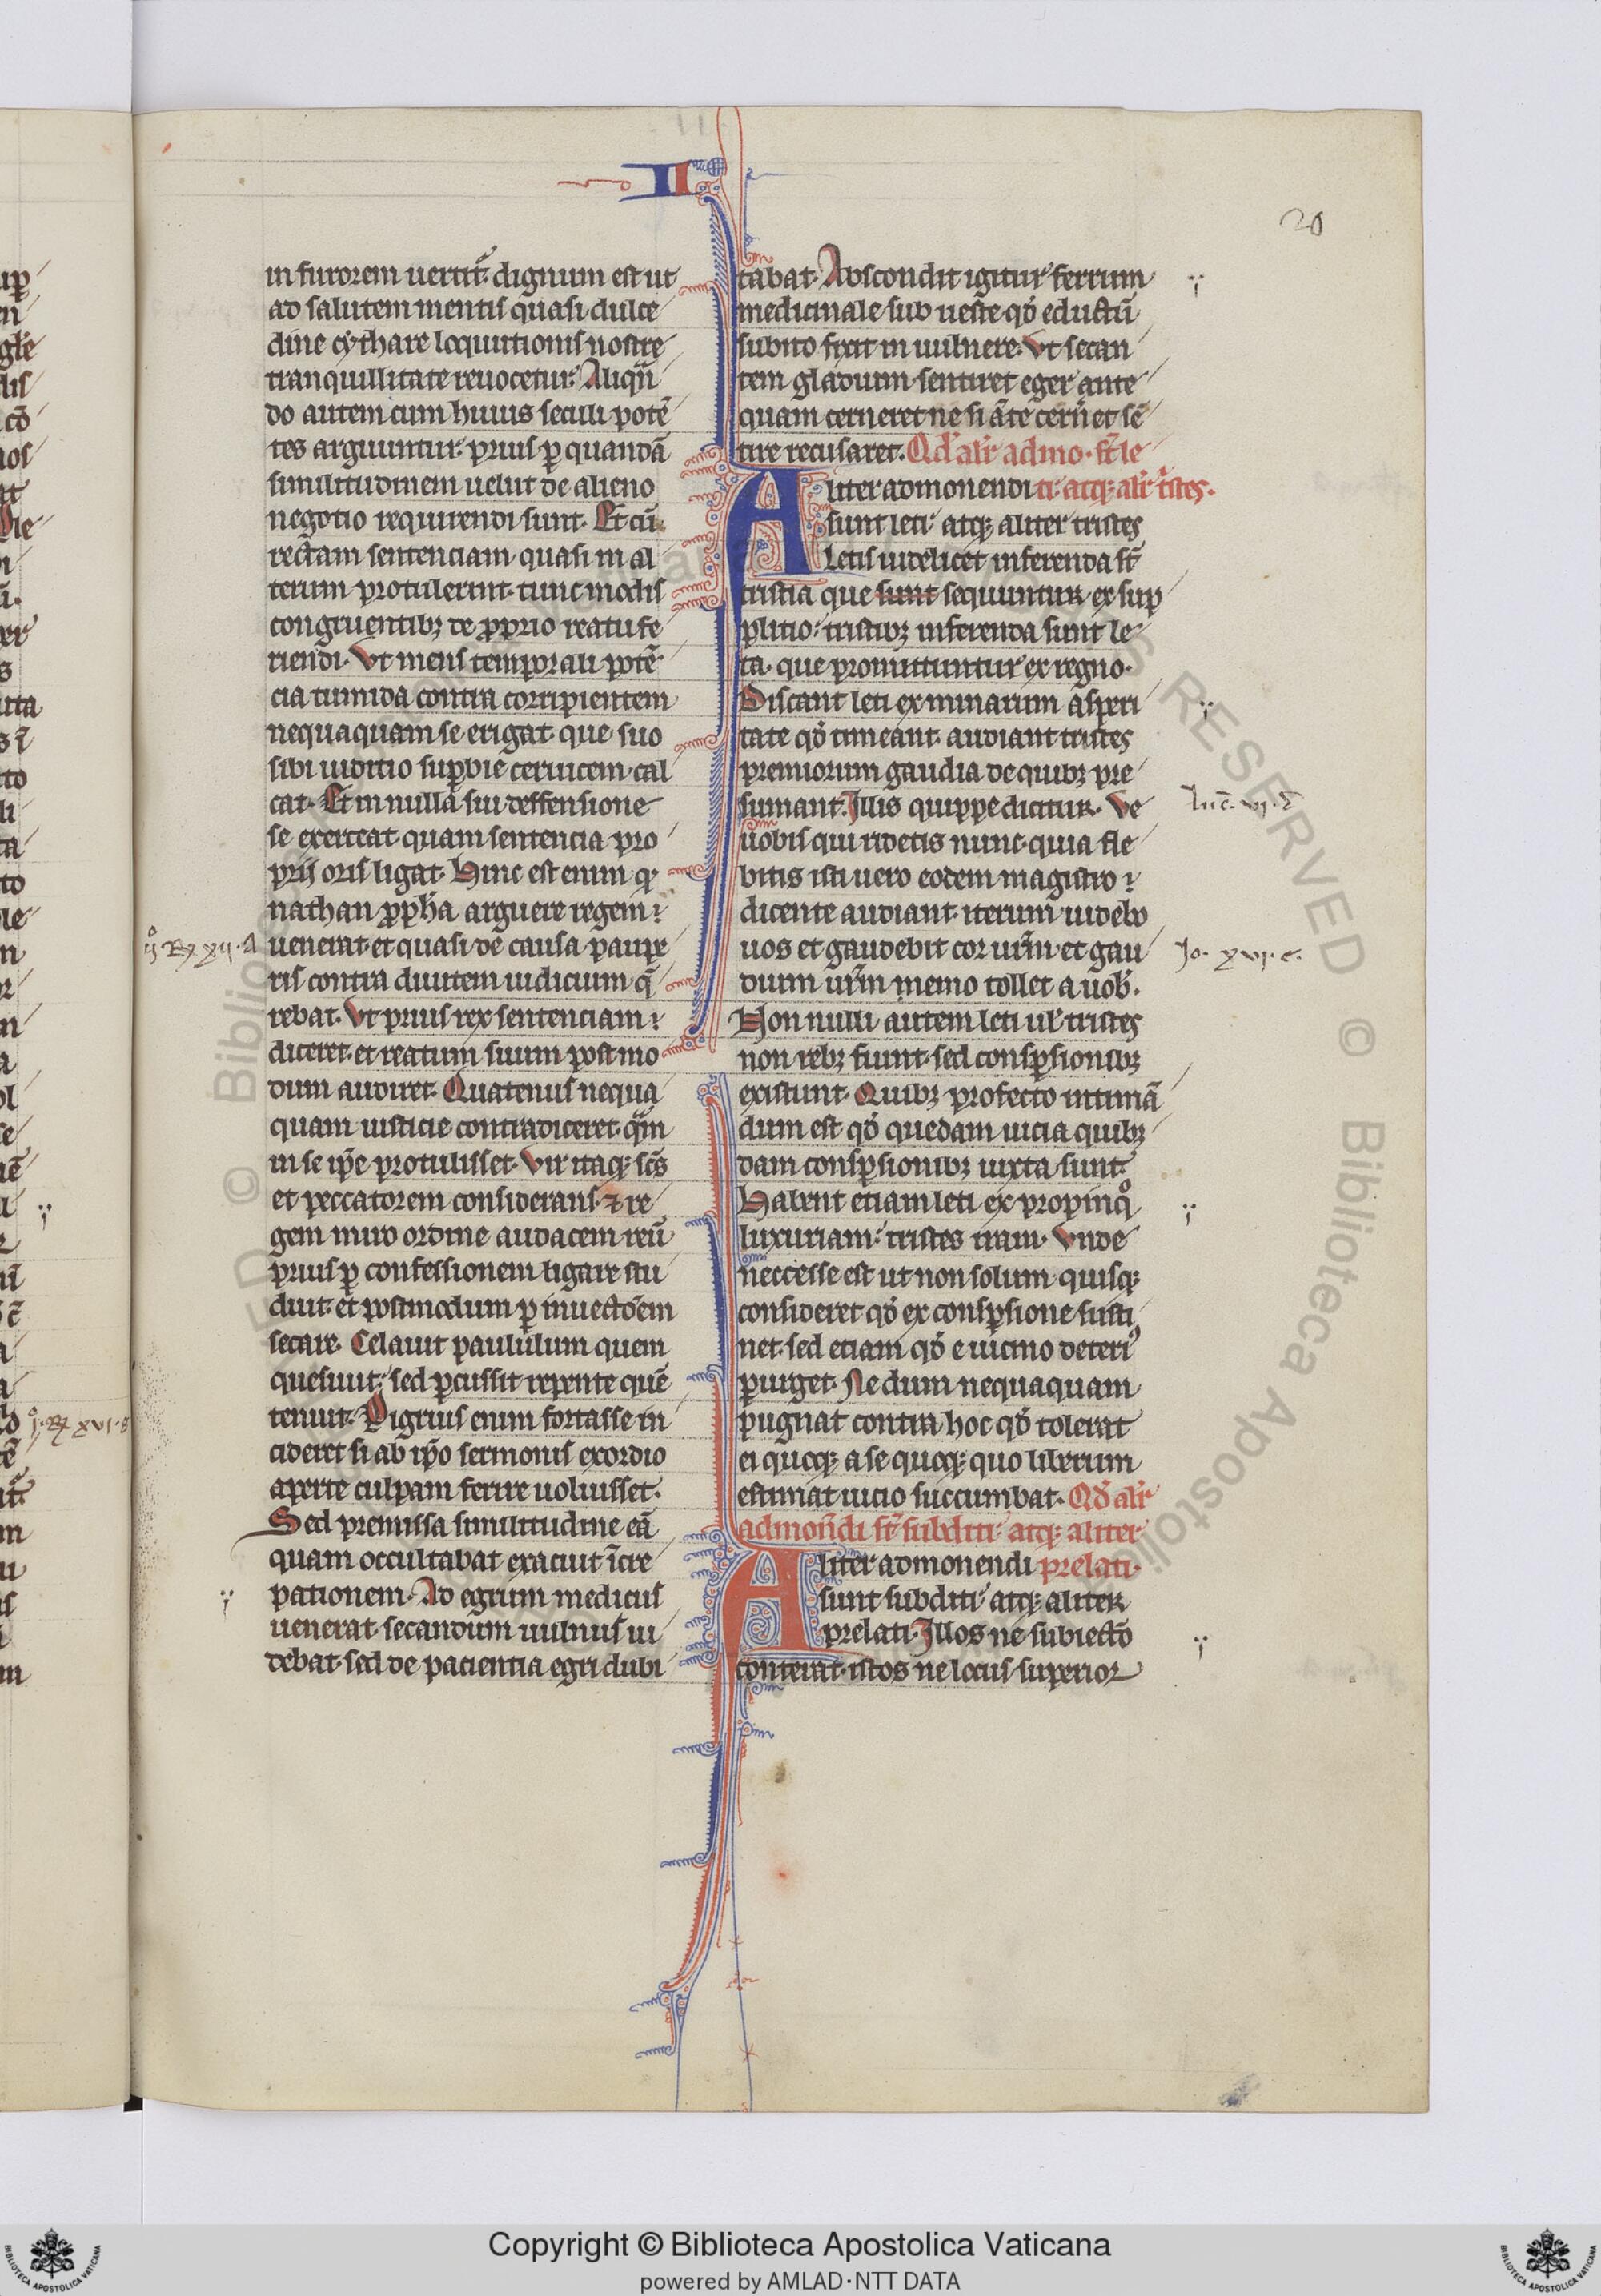 II
20
in furorem uertit᷑ dignum est ut
ad salutem mentis quasi dulce
dine cythare locuutionis nostre
tranquillitate reuocetur. Aliqn̄
do autem cum huius seculi potē
tes arguuntur. prius ꝑ quandā
similitudinem uelut de alieno
negotio requirendi sunt. Et cū
rectam sentenciam quasi in al
terum protulerint. tunc modis
congruentibꝫ de ꝓprio reatu fe
riendi. Vt mens temporali potē
cia tumida contra corripientem
nequaquam se erigat. que suo
sibi iuditio suꝑbie ceruicem cal
cat. Et in nulla sui deffensione
se exerceat quam sentencia pro
prij oris ligat. Hinc est enim ꝙ
nathan ꝓpħa arguere regem
ij° Rꝝ xij. A
uenerat et quasi de causa paupe
ris contra diuitem iudicium q̄
rebat. Vt prius rex sentenciam
diceret. et reatum suum post mo
dum audiret. Quatenus nequa
quam iusticie contradiceret. quā
in se ip̄e protulisset. Vir itaqꝫ sc̄s
et peccatorem considerans ⁊ re
gem miro ordine audacem reū
prius ꝑ confessionem ligare stu
duit. et postmodum ꝑ inuectōem
secare. Celauit paululum quem
quesiuit. sed ꝑcussit repente quē
tenuit. Pigrius enim fortasse in
cideret si ab ip̄o sermonis exordio
aperte culpam ferire uoluisset.
Sed premissa similitudine eā
quam occultabat exacuit īcre
pationem. Ad egrum medicus
uenerat secandum uulnus ui
debat. sed de pacientia egri dubi
tabat. Abscondit igitur ferrum
medicinale sub ueste qđ eductū
subito fixit in uulnere. Vt secan
tem gladium sentiret eger ante
quam cerneret ne si āte cern̄et sē
tire recusaret. Qđ alr̄ admo. st̄ le
Aliter admonendi ti. atqꝫ alr̄ tⁱstes.
sunt leti atqꝫ aliter tristes
Letis uidelicet inferenda st̄
tristia que sunt sequuntur ex sup
plitio. tristibꝫ inferenda sunt le
ta. que promittuntur ex regno.
Discant leti ex minarum asperi
tate qđ timeant. audiant tristes
premiorum gaudia de quibꝫ pre
sumant. Illis quippe dicitur. Ve
luc̄. vj. d̄
uobis qui ridetis nunc. quia fle
bitis isti uero eodem magistro
dicente audiant. iterum uidebo
uos et gaudebit cor ur̄m et gau
Jo. xvj. e.
dium ur̄m nemo tollet a uob̄.
Non nulli autem leti ul̄ tristes
non rebꝫ fiunt. sed consꝑsionibꝫ
existunt. Quibꝫ profecto intimā
dum est qđ quedam uicia quibꝫ
dam consꝑsionibꝫ iuxta sunt.
Habent etiam leti ex propinq°
luxuriam. tristes iram. Vnde
neccesse est ut non solum quisqꝫ
consideret qđ ex consꝑsione susti
net. sed etiam qđ e uicino deteri⁹
ꝑurget. Ne dum nequaquam
pugnat contra hoc qđ tolerat
ei quoqꝫ a se quoqꝫ quo liberum
estimat uicio succumbat. Qđ alr̄
admon̄di st̄ subditi atqꝫ aliter
Aliter admonendi prelati.
sunt subditi atqꝫ aliter
prelati. Illos ne subiectō
conterat. istos ne locus superior
j°. Rꝝ xvj. g
Copyright © Biblioteca Apostolica Vaticana
powered by AMLAD·NTT DATA